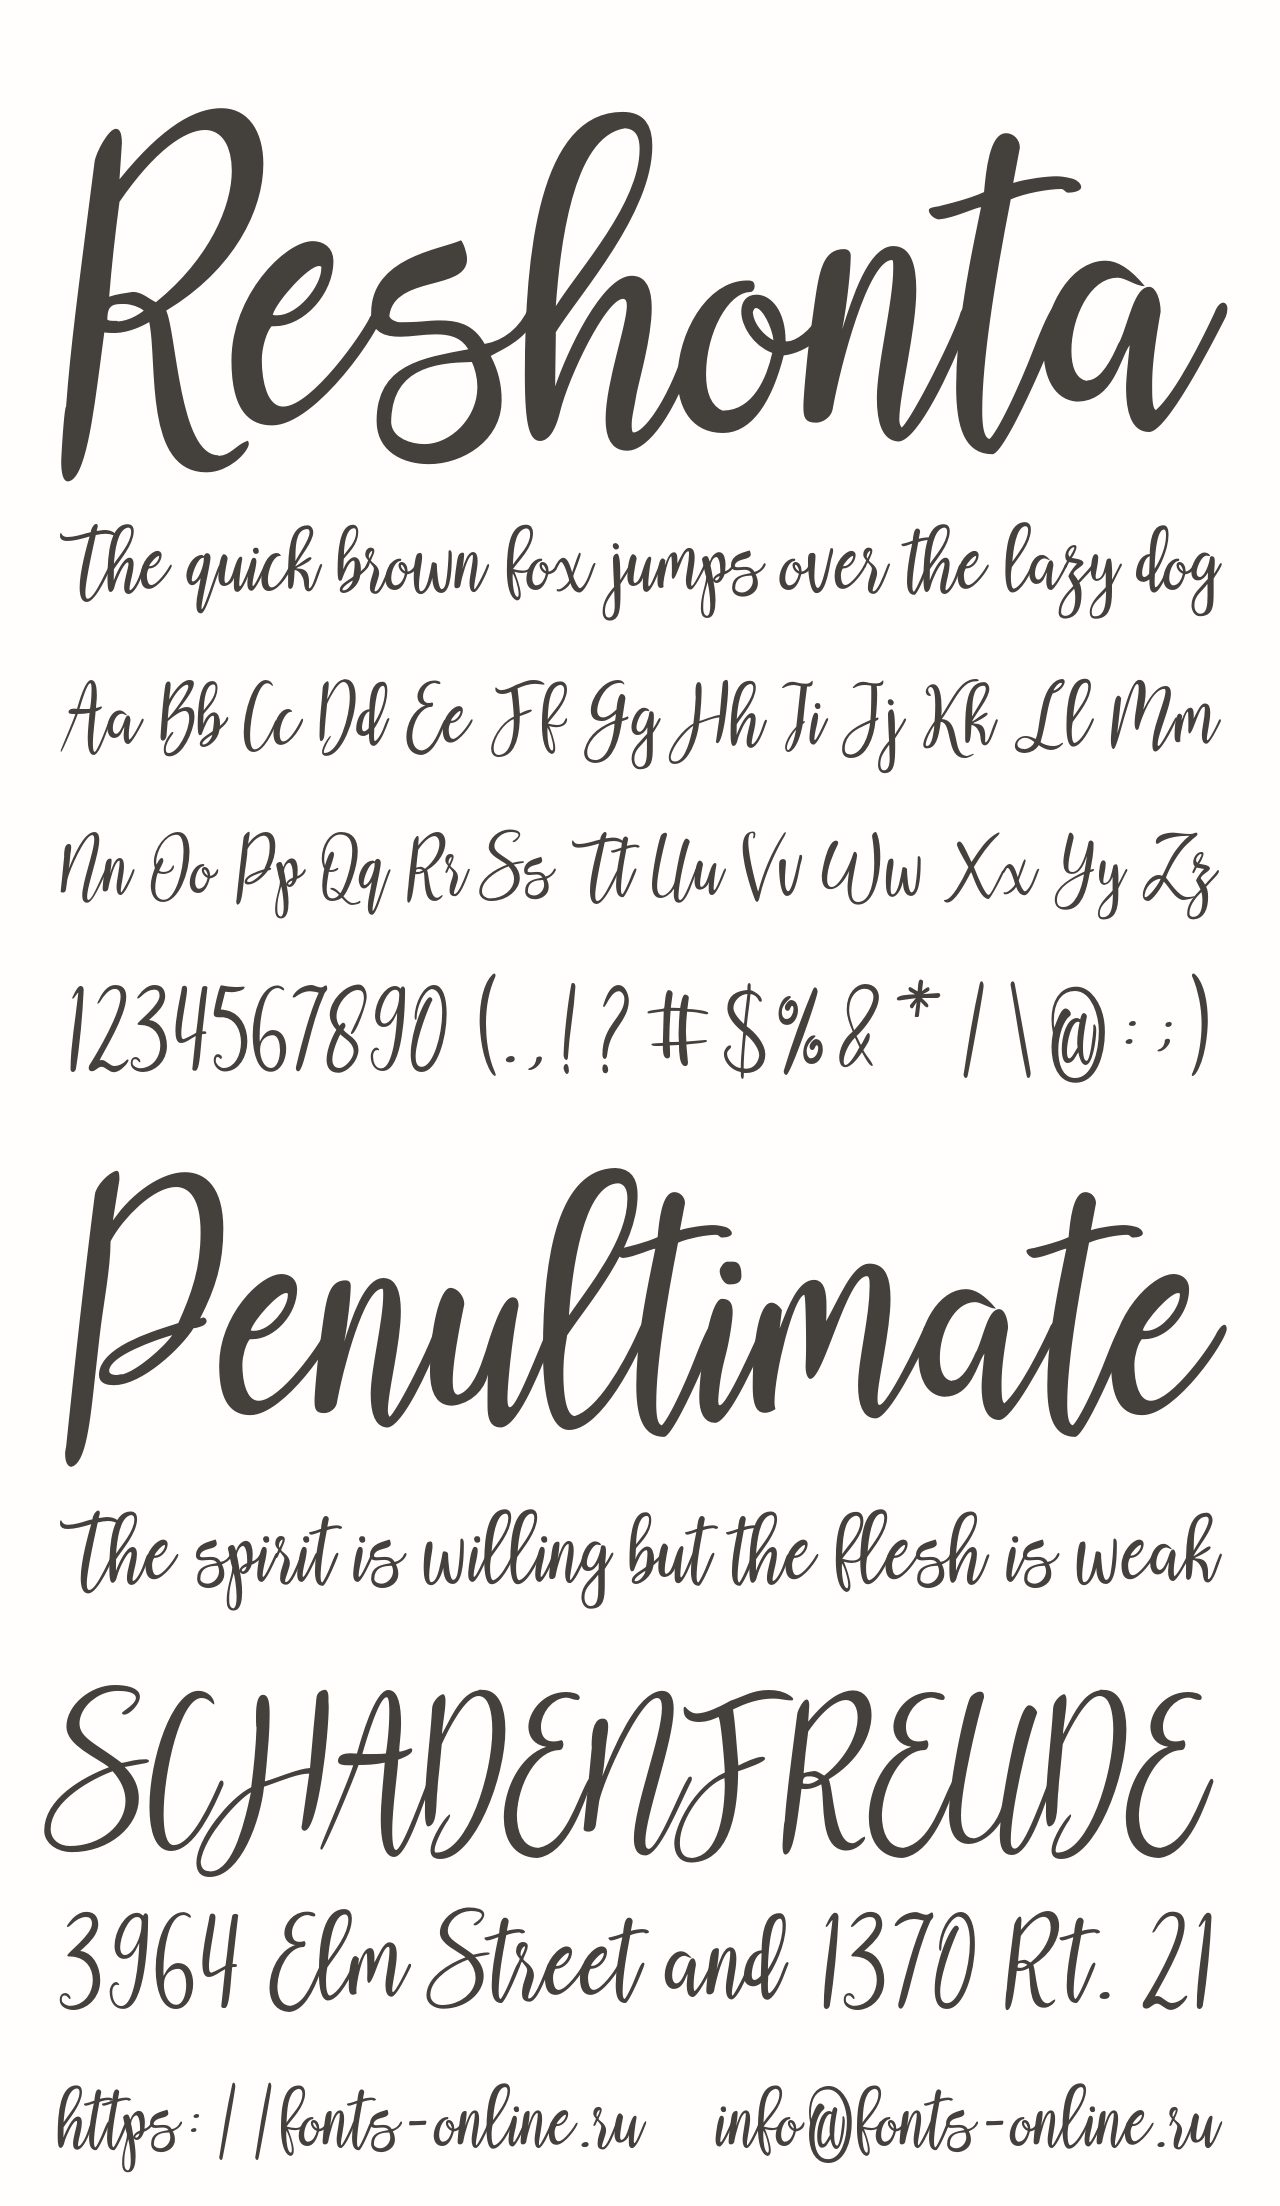 Reshonta
The quick brown fox jumps over the lazy dog
Aa Bb Cc Dd Ee Ff Gg Hh Ii Jj Kk Ll Mm
Nn Oo Pp Qq Rr Ss Tt Uu Vv Ww Xx Yy Zz
1234567890 (.,!?#$%&*/\@:;)
Penultimate
The spirit is willing but the flesh is weak
SCHADENFREUDE
3964 Elm Street and 1370 Rt. 21
https://fonts-online.ru info@fonts-online.ru